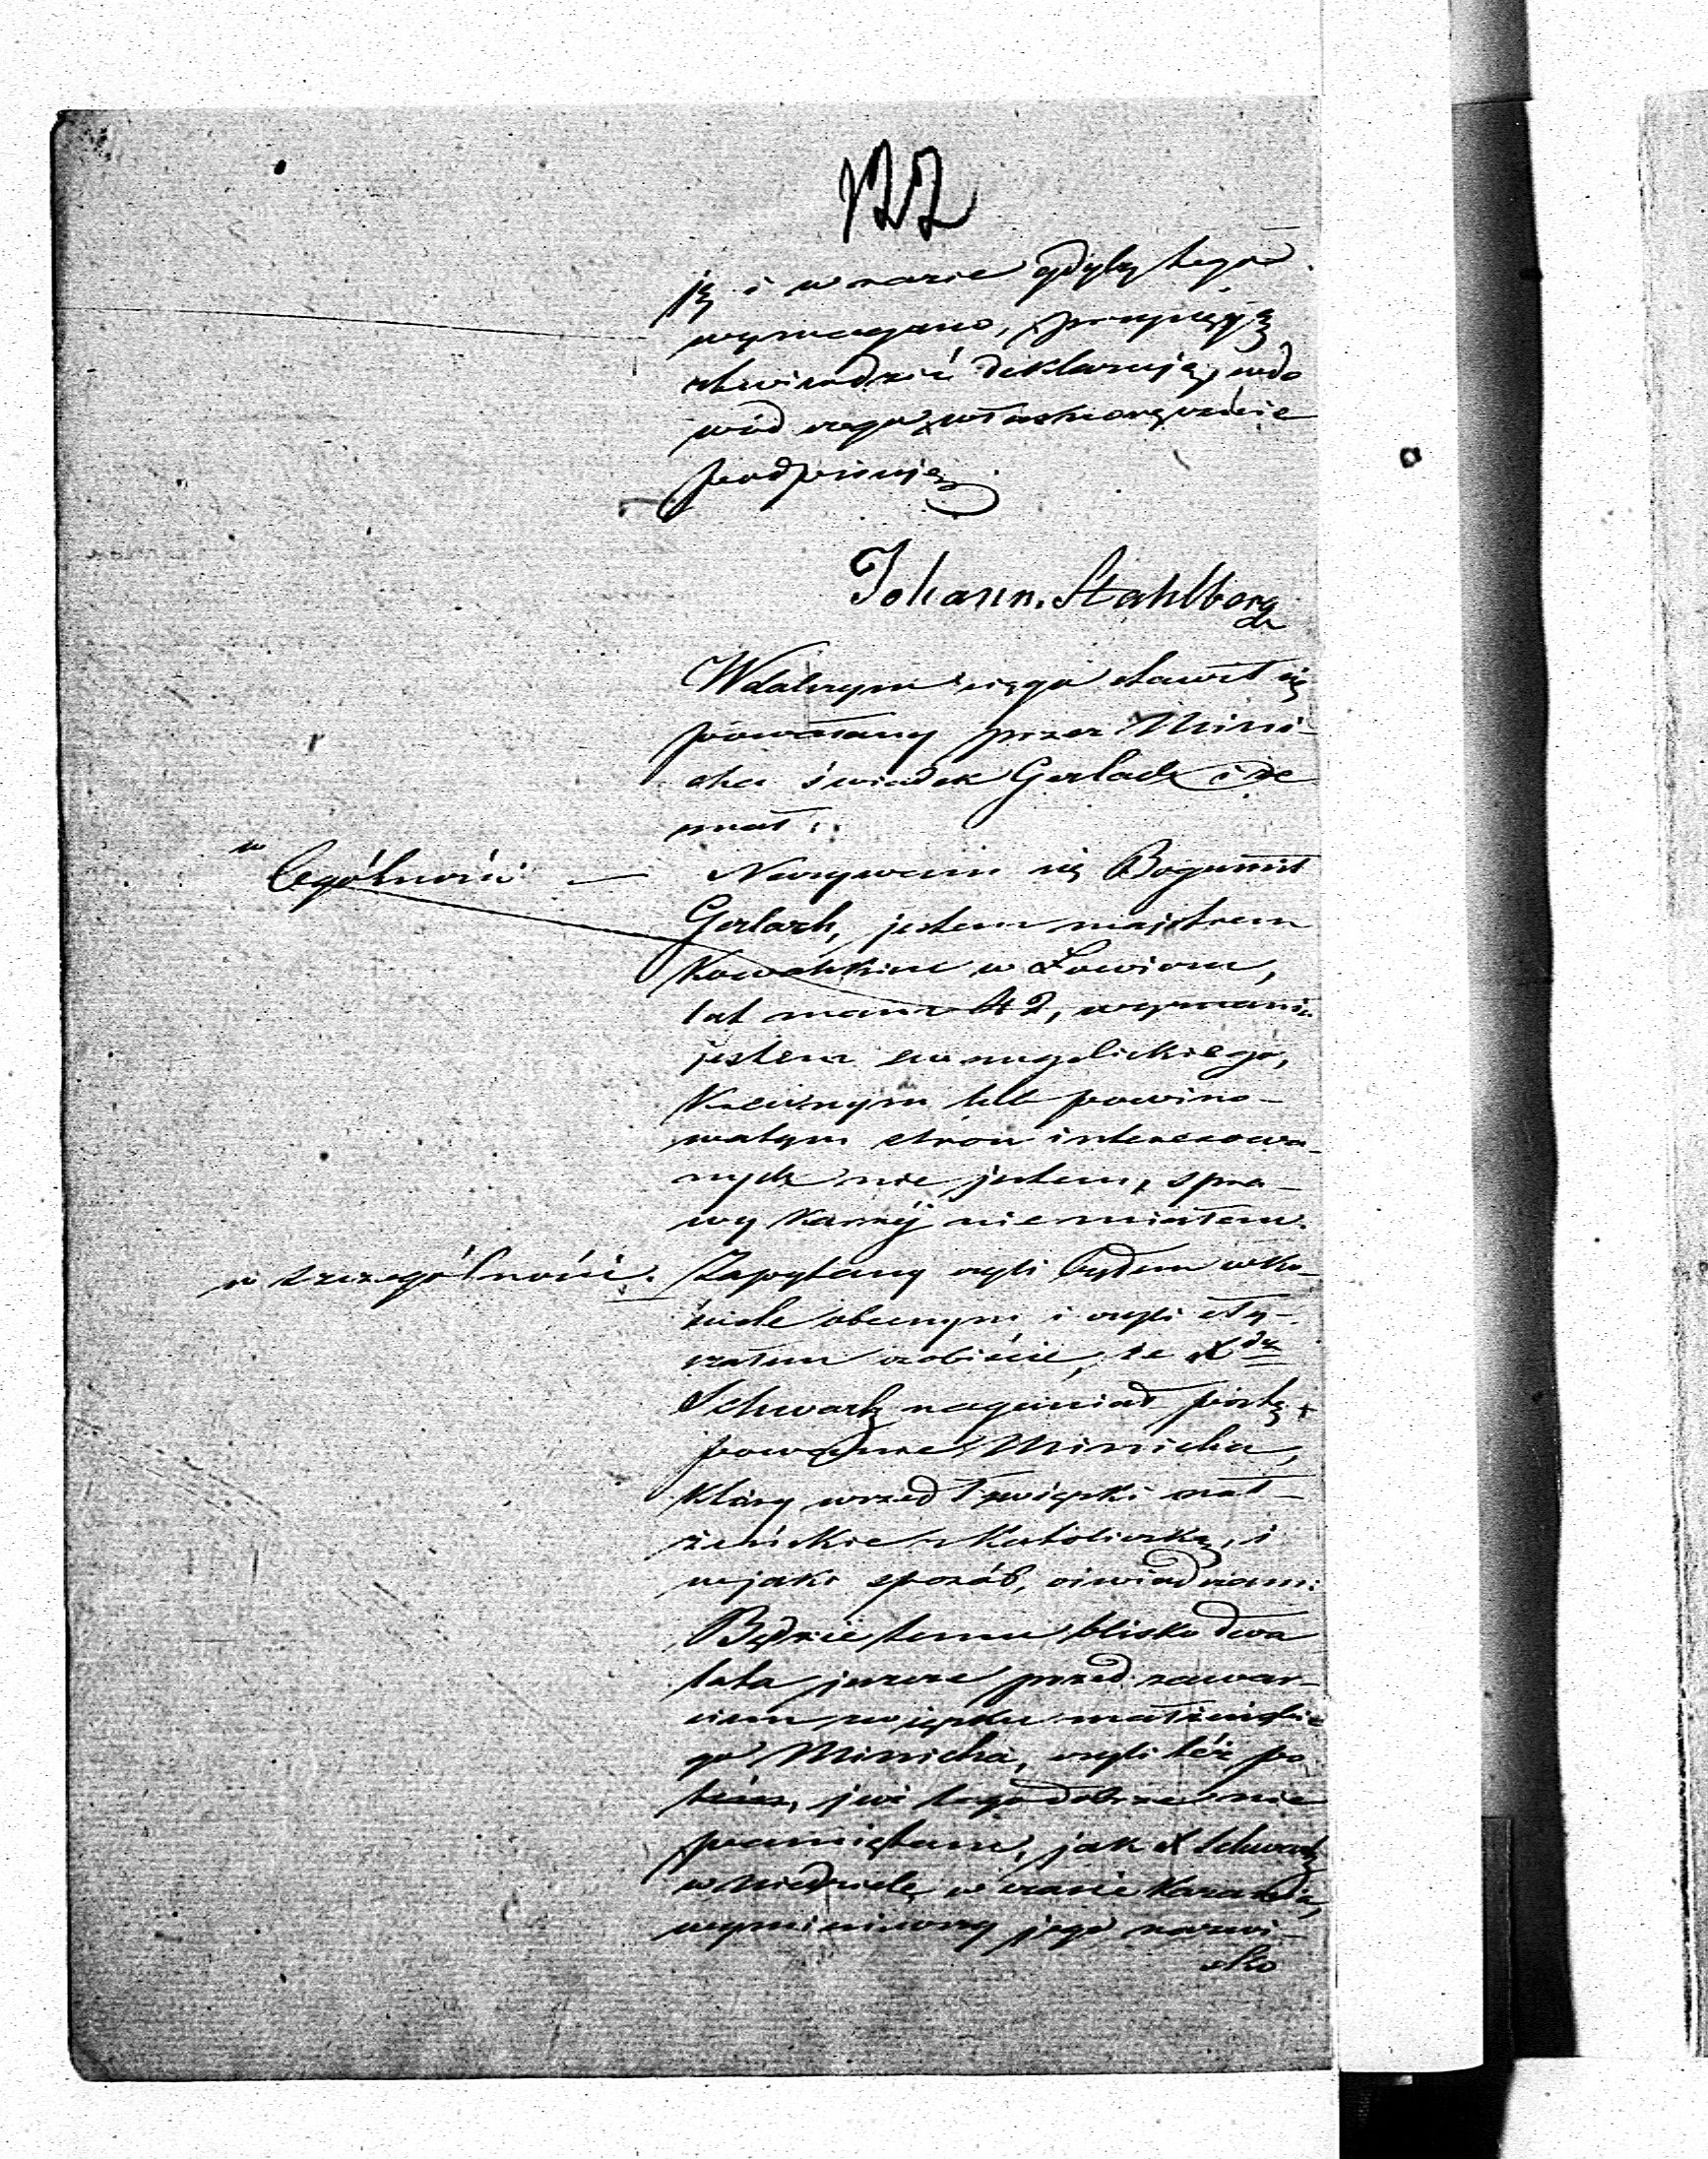 122
ję i w razie gdyby tego
wymagano, przysięgą
stwierdzić deklaruję, wdo
wód czego własnoręcznie
podpisuję
Johann. Stahlberg
W dalszym ciągu stawił się
powołany przez Mini-
cha świadek Gerlach i ze
znał:
w Ogólności — Nazywam się Bogumił
Gerlach, jestem majstrem
Kowalskim w Łowiczu,
lat mam 42, wyznania
jestem ewangelickiego,
Krewnym lub powino-
watym stron interesowa-
nych nie jestem, spra-
wy karnéj nie miałem.
w szczególności. Zapytany czyli byłem w Ko-
ściele obecnym i czyli sły-
szałem osobiście, że Xdz
Schwartz naganiał postę-
powanie Minicha,
który wszedł w związki mał-
żeńskie z Katoliczką, i
w jaki sposób, oświadczam:
Będzie temu blisko dwa
lata jeszcze przed zawar-
ciem związku małżeńskie
go Minicha, czyli téż po
tém, już tego dobrze nie
pamiętam, jak X Schwartz
w Niedzielę w czasie Kazania,
wymieniwszy jego nazwi-
sko